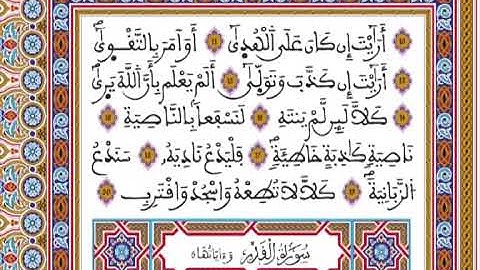 أَرَٰيْتَ إِن كَانَ عَلَى ٱلْهُدَىٰٓ أَوَ اَمَرَ بِالتَّقْوَىٰٓ
أَرَٰيْتَ إِن كَذَّبَ وَتَوَلَّىٰٓ أَلَمْ يَعْلَم بِأَنَّ ٱللَّهَ يَرَىٰ
كَلَّا لَئِن لَّمْ يَنتَهِ لَنَسْفَعاً بِالنَّاصِيَةِ
نَاصِيَةٖ كَٰذِبَةٍ خَاطِئَةٖ فَلْيَدْعُ نَادِيَهُۥ سَنَدْعُ
ٱلزَّبَانِيَةَ كَلَّا لَا تُطِعْهُ وَاسْجُدْ وَاقْتَرِب
سُورَةُ الْقَدْرِ وءاياتها